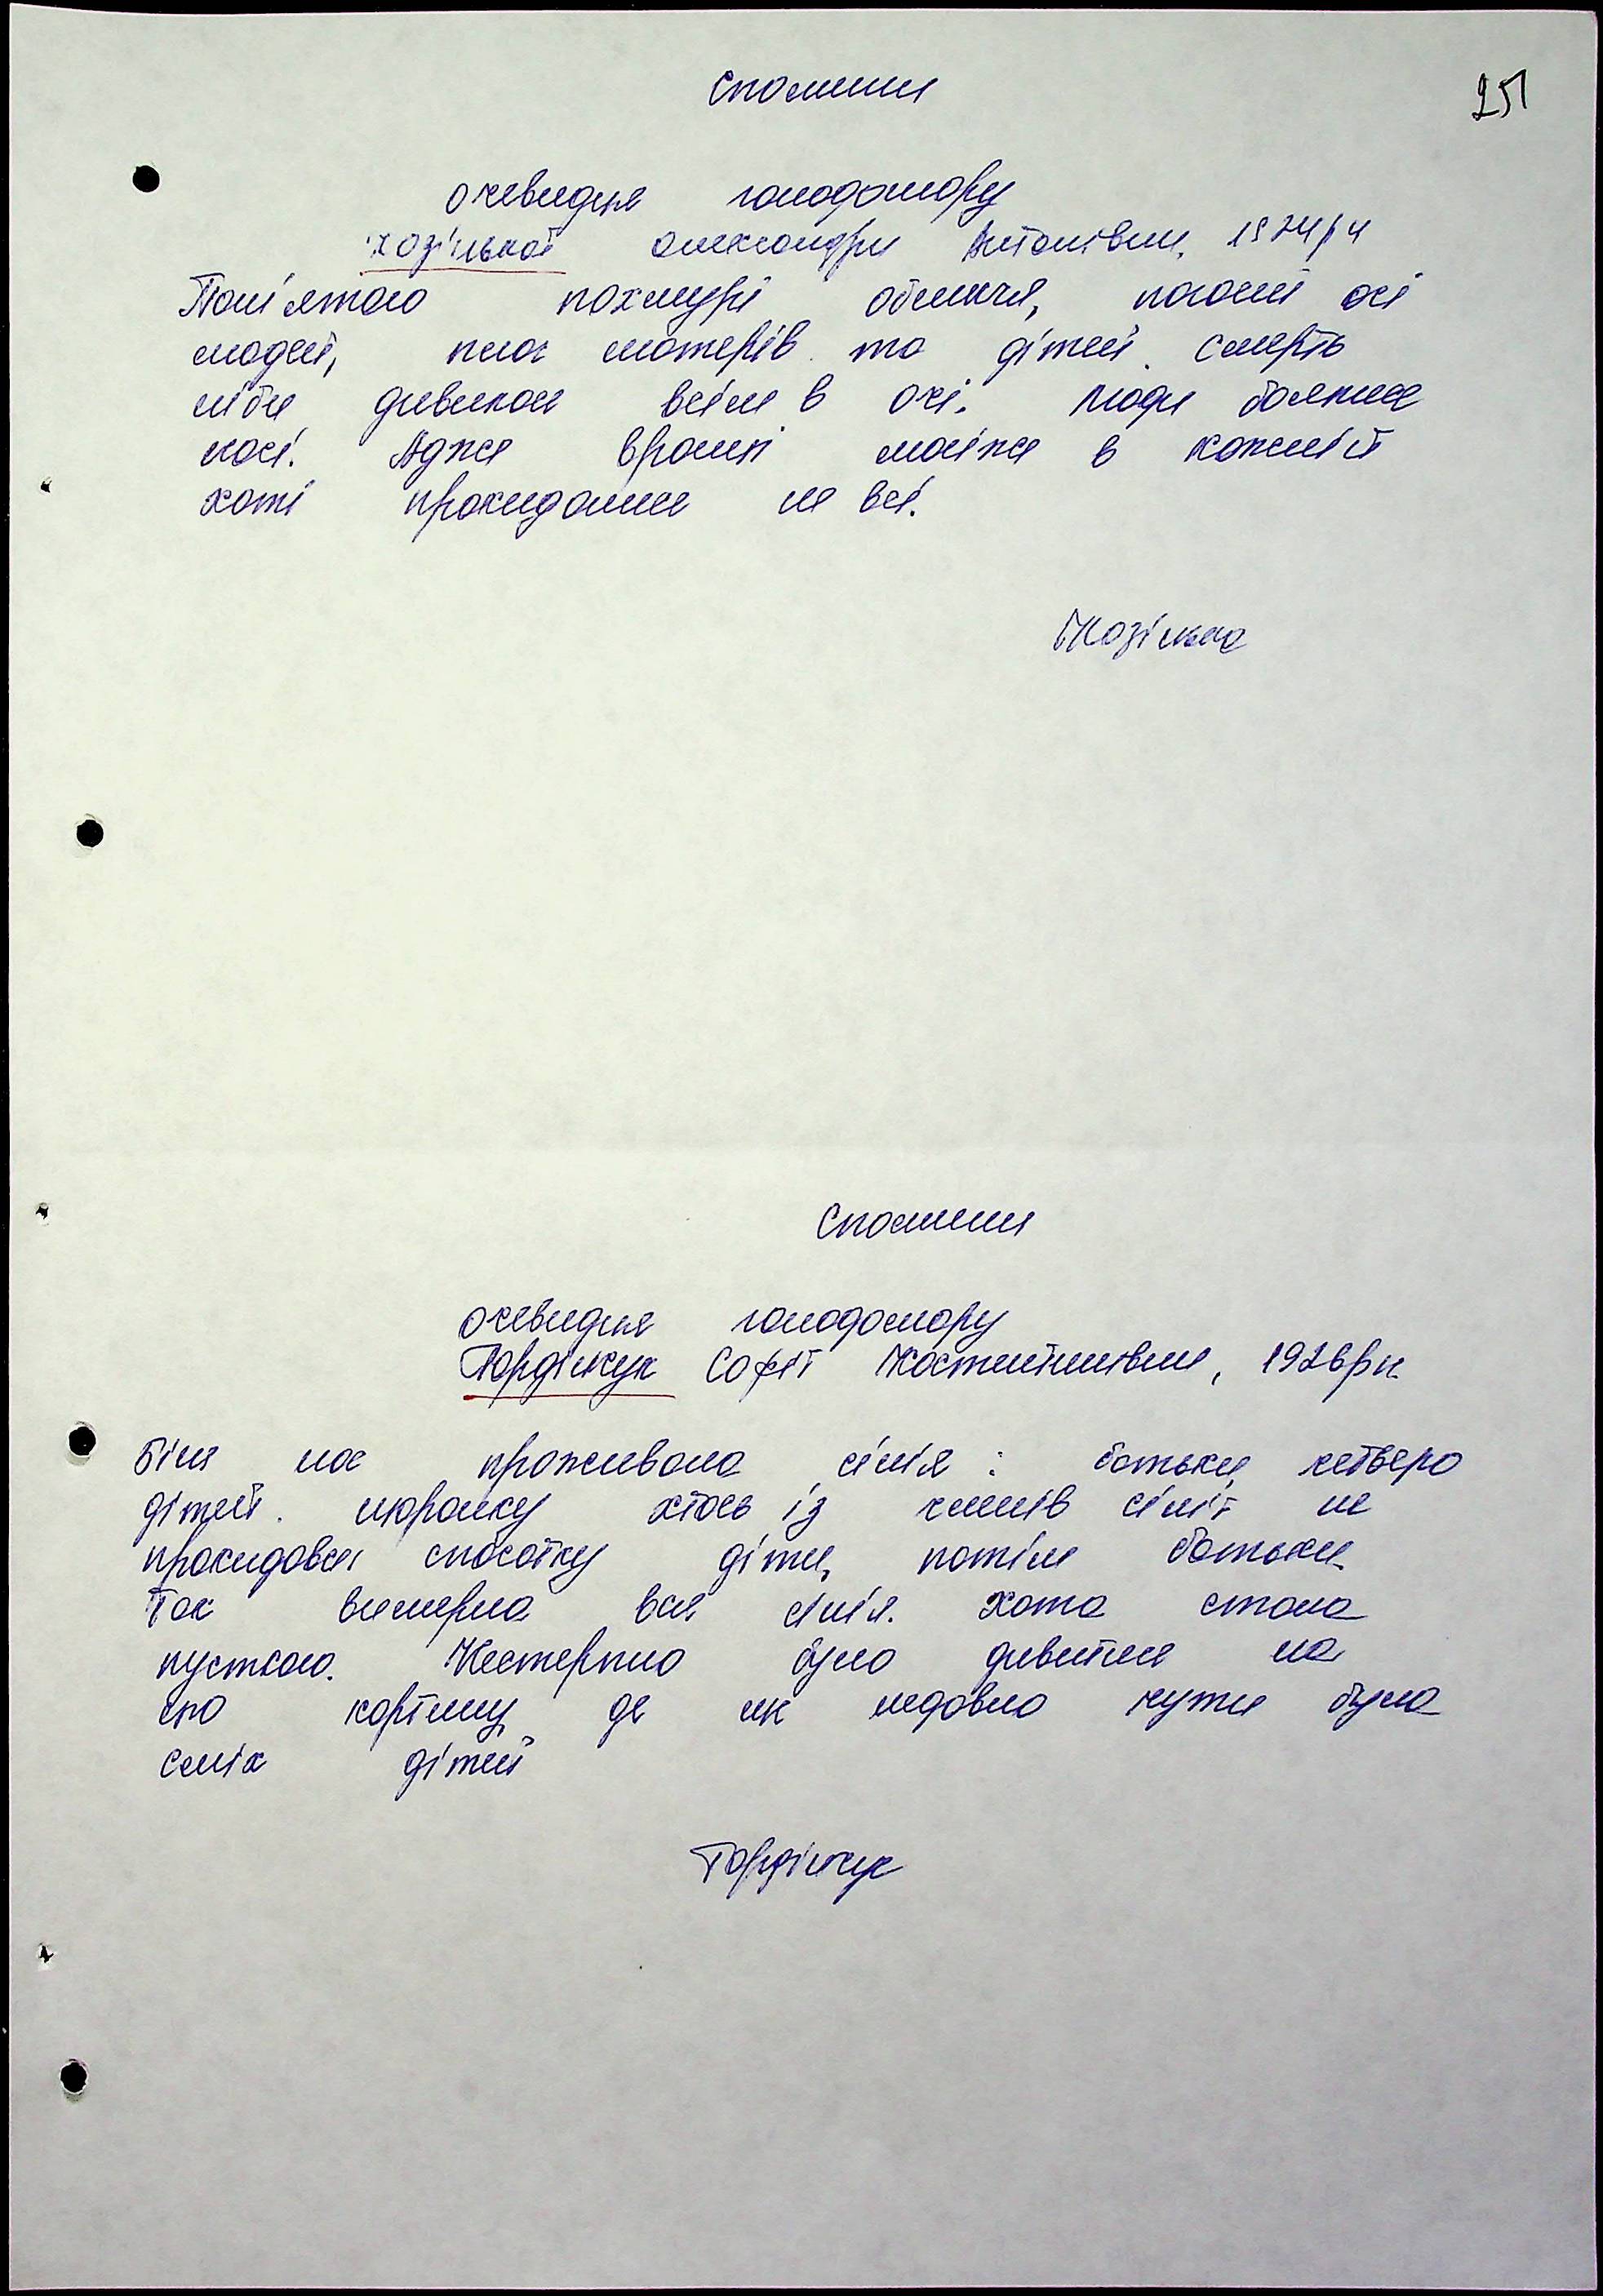 Спомини
251
очевидця голодомору
Козілької Олександри Антонівни, 1924 р н
Пам'ятаю похмурі обличчя, погаслі очі
людей, плач матерів та дітей. Смерть
ніби дивилась всім в очі. Люди боялися
ночі. Адже вранці майже в кожній
хаті прокидалися не всі.
Козілька
Спомини
очевидця голодомору
Гордійчук Софії Костянтинівни, 1926 р н.
Біля нас проживала сім'я: батьки, четверо
дітей. щоранку хтось із членів сім'ї не
прокидався спочатку діти, потім батьки.
Так вимерла вся сім'я. Хата стала
пусткою. Нестерпно було дивитися на
цю картину, де як недавно чути було
сміх дітей
Гордійчук